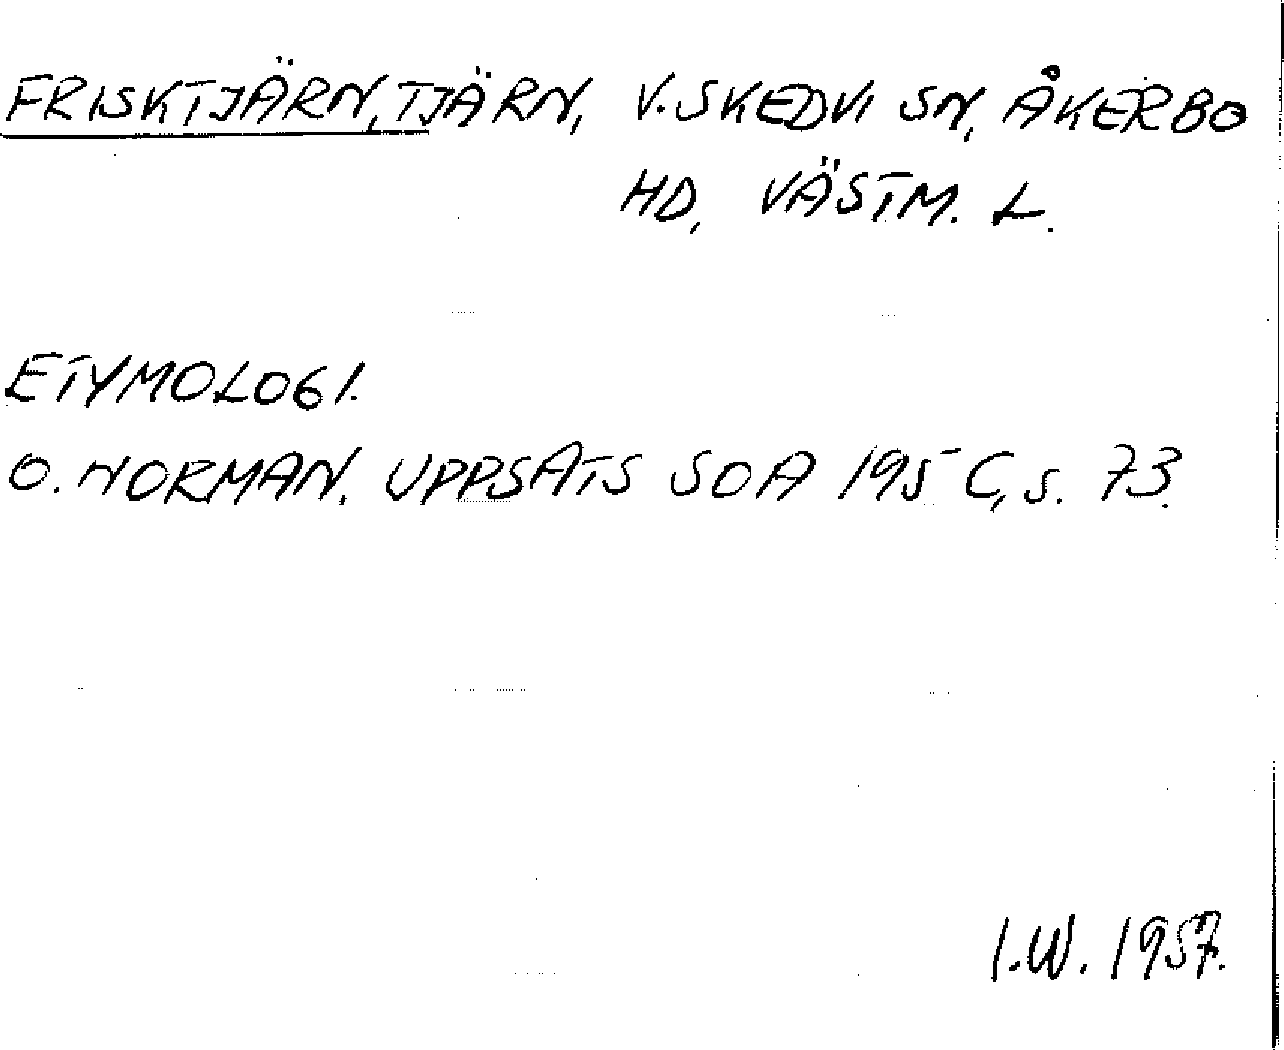 FRISKTJÄRN, TJÄRN, V. SKEDVI SN, ÅKERBO
HD, VÄSTM. L.
ETYMOLOGI.
O. NORMAN. UPPSATS SOA 195 C, s. 73.
I.W. 1957.